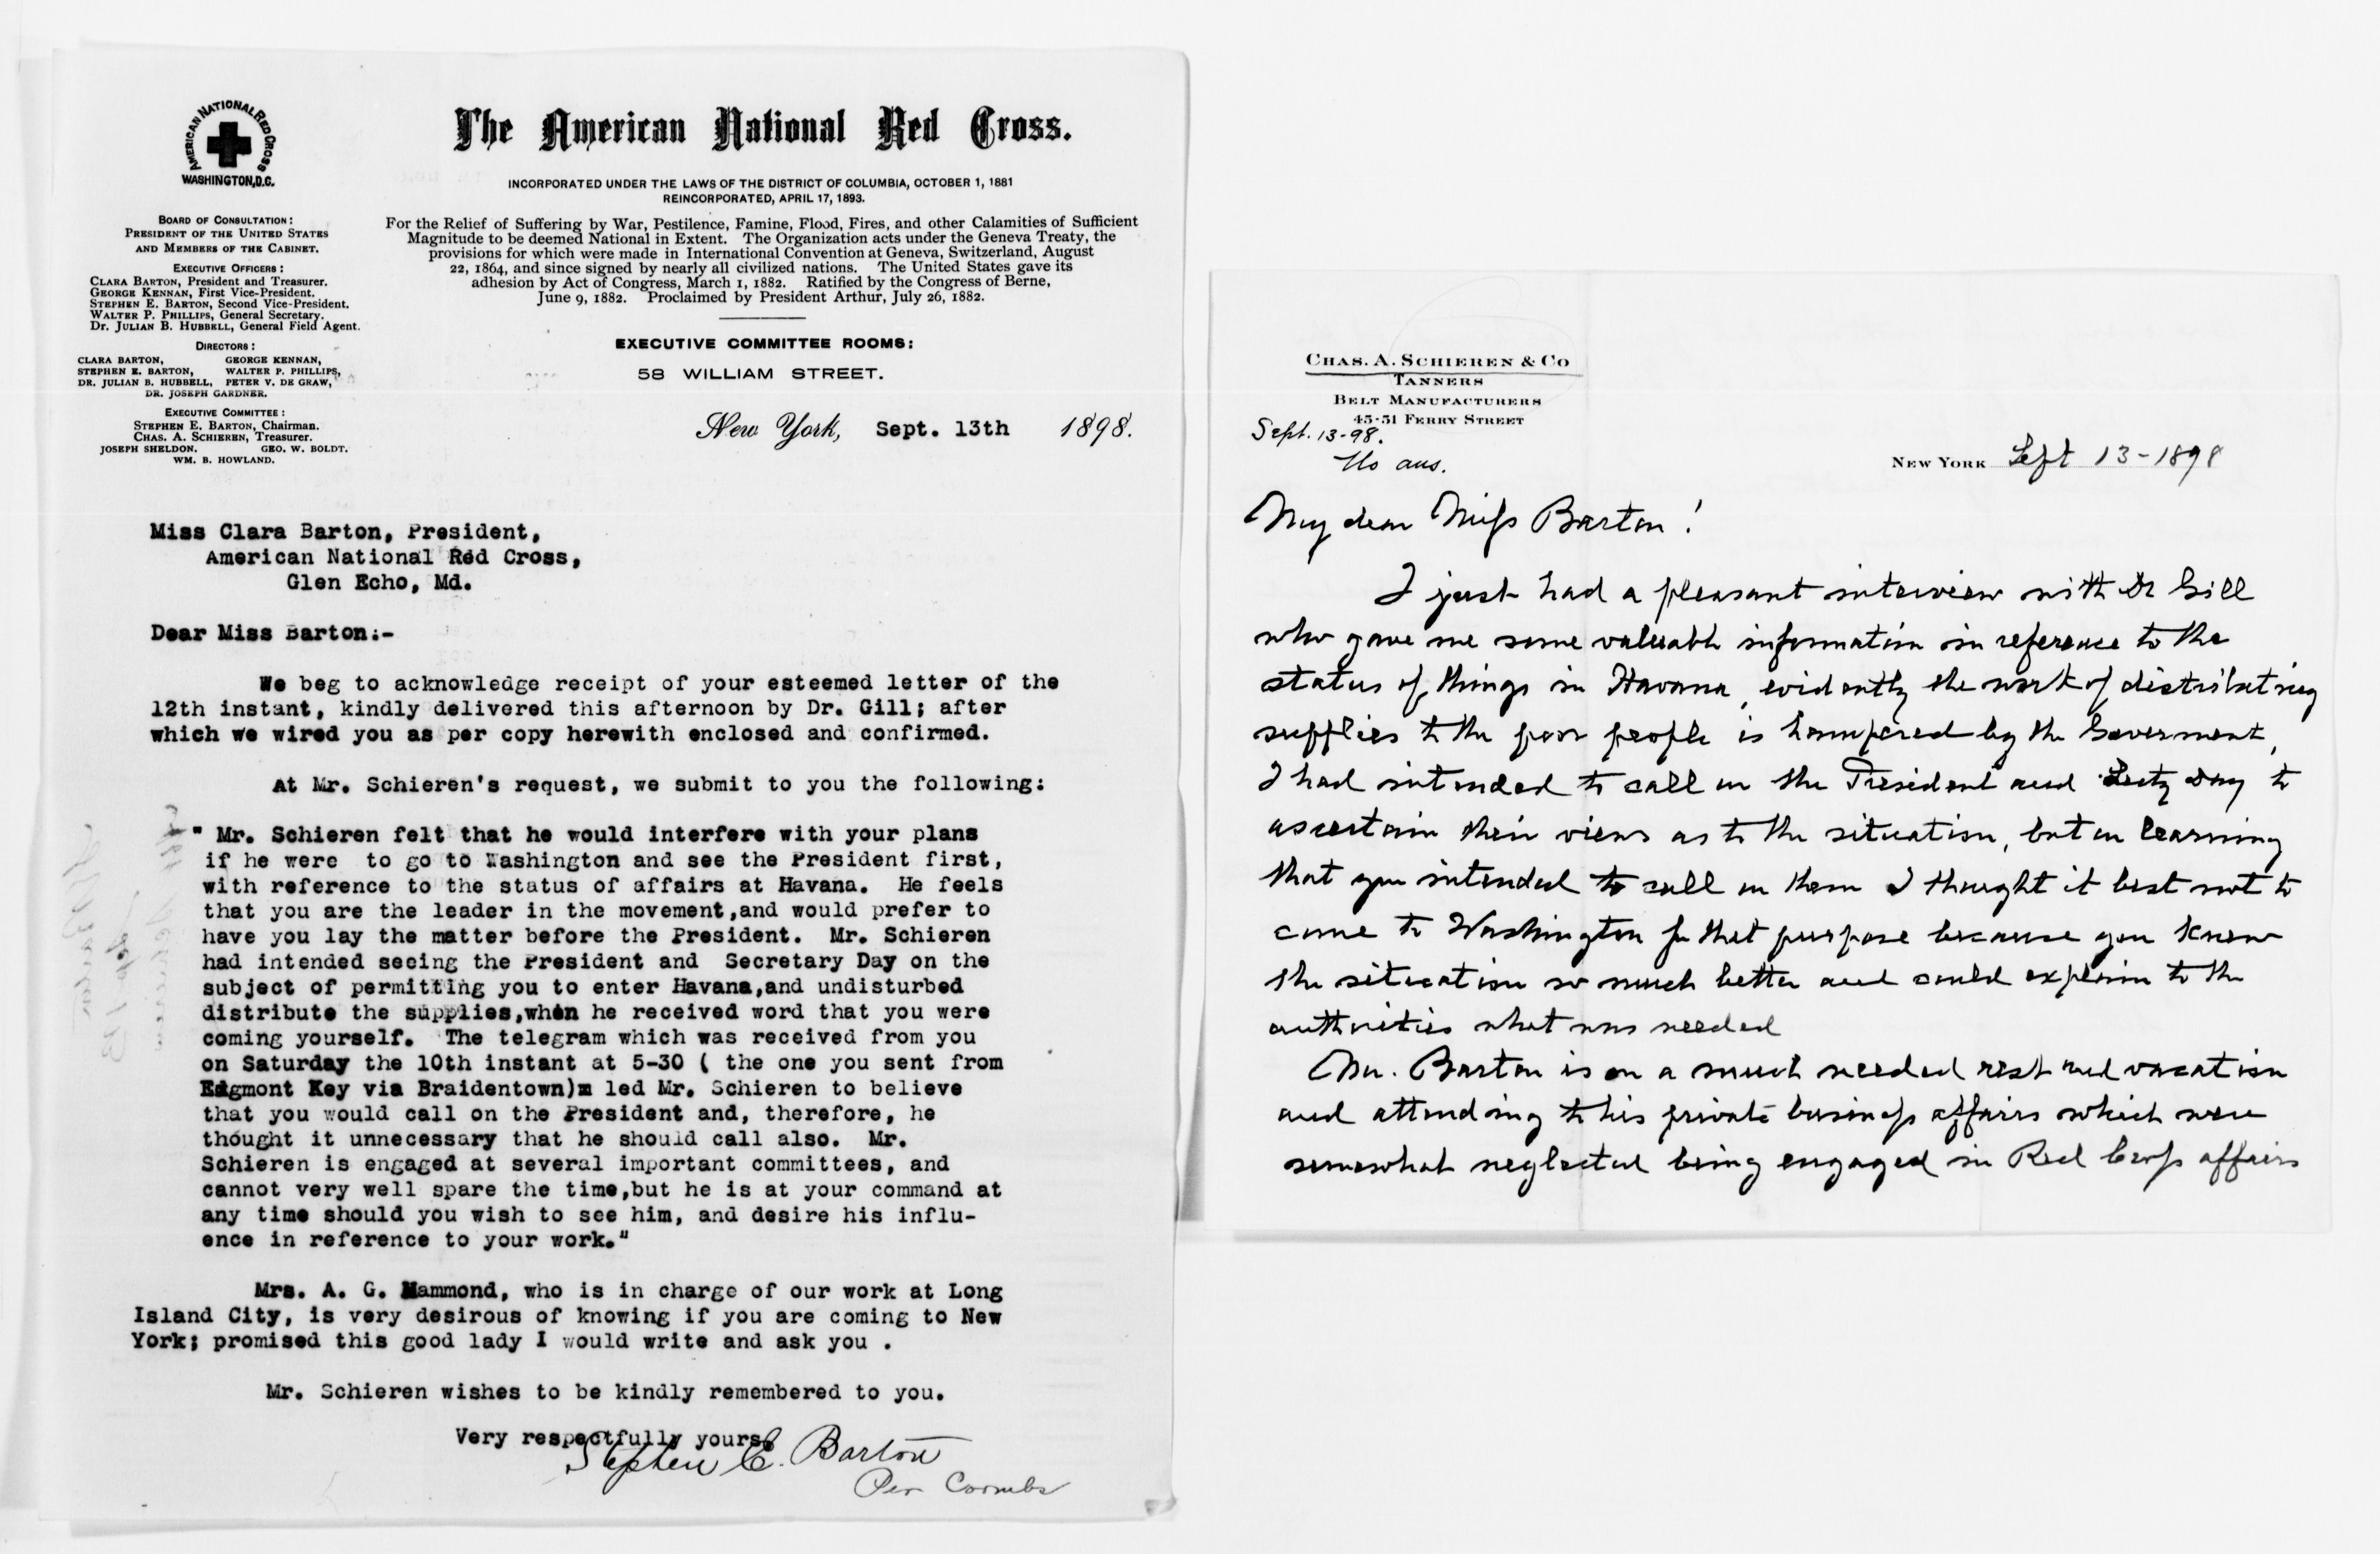 AMERICAN NATIONAL RED CROSS
WASHINGTON, D.C.
BOARD OF CONSULTATION:
PRESIDENT OF THE UNITED STATES
AND MEMBERS OF THE CABINET.
EXECUTIVE OFFICERS:
CLARA BARTON, President and Treasurer.
GEORGE KENNAN, First Vice-President.
STEPHEN E. BARTON, Second Vice-President.
WALTER P. PHILLIPS, General Secretary.
Dr. JULIAN B. HUBBELL, General Field Agent.
DIRECTORS:
CLARA BARTON, GEORGE KENNAN,
STEPHEN E. BARTON, WALTER P. PHILLIPS,
DR. JULIAN B. HUBBELL, PETER V. DE GRAW,
DR. JOSEPH GARDNER.
EXECUTIVE COMMITTEE:
STEPHEN E. BARTON, Chairman.
CHAS. A. SCHIEREN, Treasurer.
JOSEPH SHELDON. GEO. W. BOLDT.
WM. B. HOWLAND.
The American National Red Cross.
INCORPORATED UNDER THE LAWS OF THE DISTRICT OF COLUMBIA, OCTOBER 1, 1881
REINCORPORATED, APRIL 17, 1893.
For the Relief of Suffering by War, Pestilence, Famine, Flood, Fires, and other Calamities of Sufficient
Magnitude to be deemed National in Extent. The Organization acts under the Geneva Treaty, the
provisions for which were made in International Convention at Geneva, Switzerland, August
22, 1864, and since signed by nearly all civilized nations. The United States gave its
adhesion by Act of Congress, March 1, 1882. Ratified by the Congress of Berne,
June 9, 1882. Proclaimed by President Arthur, July 26, 1882.
EXECUTIVE COMMITTEE ROOMS:
58 WILLIAM STREET.
New York, Sept. 13th 1898.
Miss Clara Barton, President,
American National Red Cross,
Glen Echo, Md.
Dear Miss Barton:-
We beg to acknowledge receipt of your esteemed letter of the
12th instant, kindly delivered this afternoon by Dr. Gill; after
which we wired you as per copy herewith enclosed and confirmed.
At Mr. Schieren's request, we submit to you the following:
" Mr. Schieren felt that he would interfere with your plans
if he were to go to Washington and see the President first,
with reference to the status of affairs at Havana. He feels
that you are the leader in the movement,and would prefer to
have you lay the matter before the President. Mr. Schieren
had intended seeing the President and Secretary Day on the
subject of permitting you to enter Havana,and undisturbed
distribute the supplies,when he received word that you were
coming yourself. The telegram which was received from you
on Saturday the 10th instant at 5-30 ( the one you sent from
Edgmont Key via Braidentown)m led Mr. Schieren to believe
that you would call on the President and, therefore, he
thought it unnecessary that he should call also. Mr.
Schieren is engaged at several important committees, and
cannot very well spare the time,but he is at your command at
any time should you wish to see him, and desire his influ-
ence in reference to your work."
Mrs. A. G. Hammond, who is in charge of our work at Long
Island City, is very desirous of knowing if you are coming to New
York; promised this good lady I would write and ask you .
Mr. Schieren wishes to be kindly remembered to you.
Very respectfully yours,
Stephen E. Barton
Per Coombs
CHAS. A. SCHIEREN & CO
TANNERS
BELT MANUFACTURERS
45-51 FERRY STREET
Sept. 13-98.
No ans.
NEW YORK Sept 13-1898
My dear Miss Barton!
I just had a pleasant interview with Dr Gill
who gave me some valuable information in reference to the
status of things in Havana, evidently the work of distributing
supplies to the poor people is hampered by the Goverment,
I had intended to call on the President and Secty Day to
ascertain their views as to the situation, but on learning
that you intended to call on them I thought it best not to
come to Washington for that purpose because you know
the situation so much better and could explain to the
authorities what was needed
Mr. Barton is on a much needed rest and vacation
and attending to his private business affairs which were
somewhat neglected being engaged in Red Cross affairs